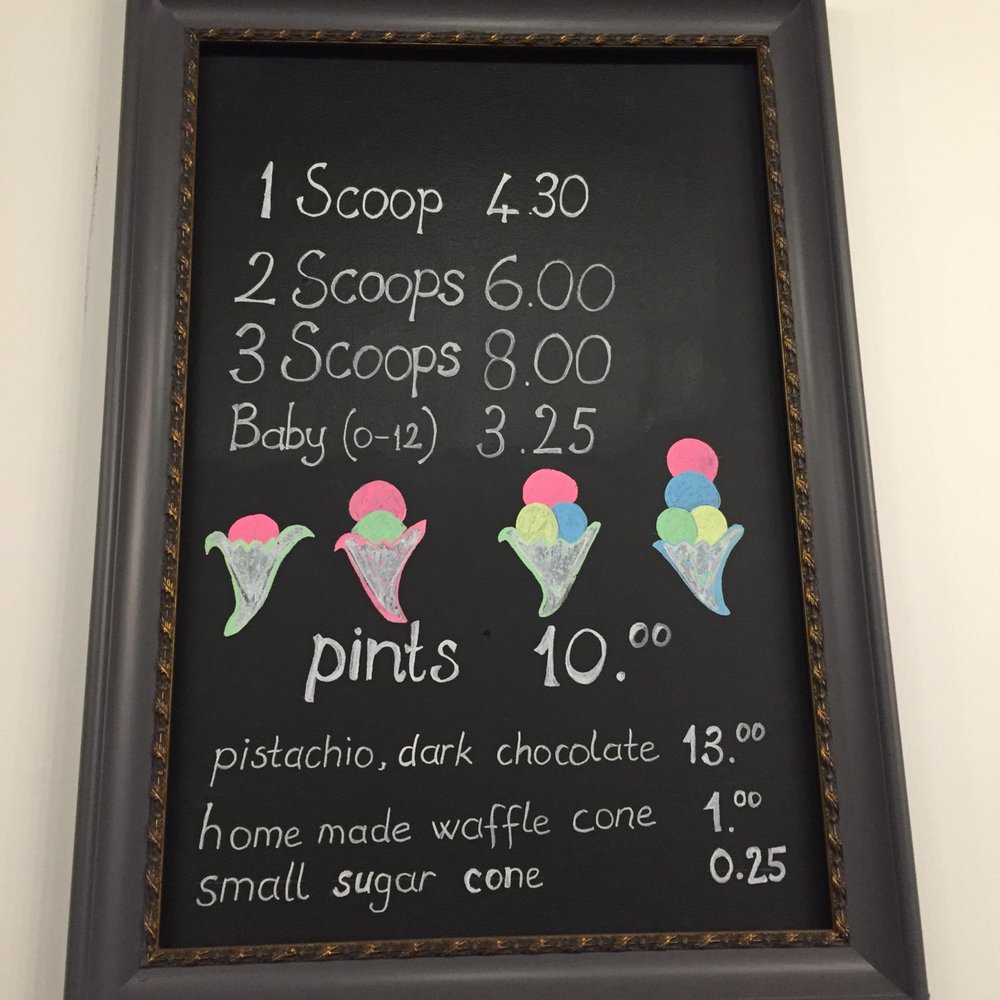 1 Scoop 4.30
2 Scoops 6.00
3 Scoops 8.00
Baby (0-12) 3.25
pints 10.00
pistachio, dark chocolate 13.00
home made waffle cone 1.00
small sugar cone 0.25